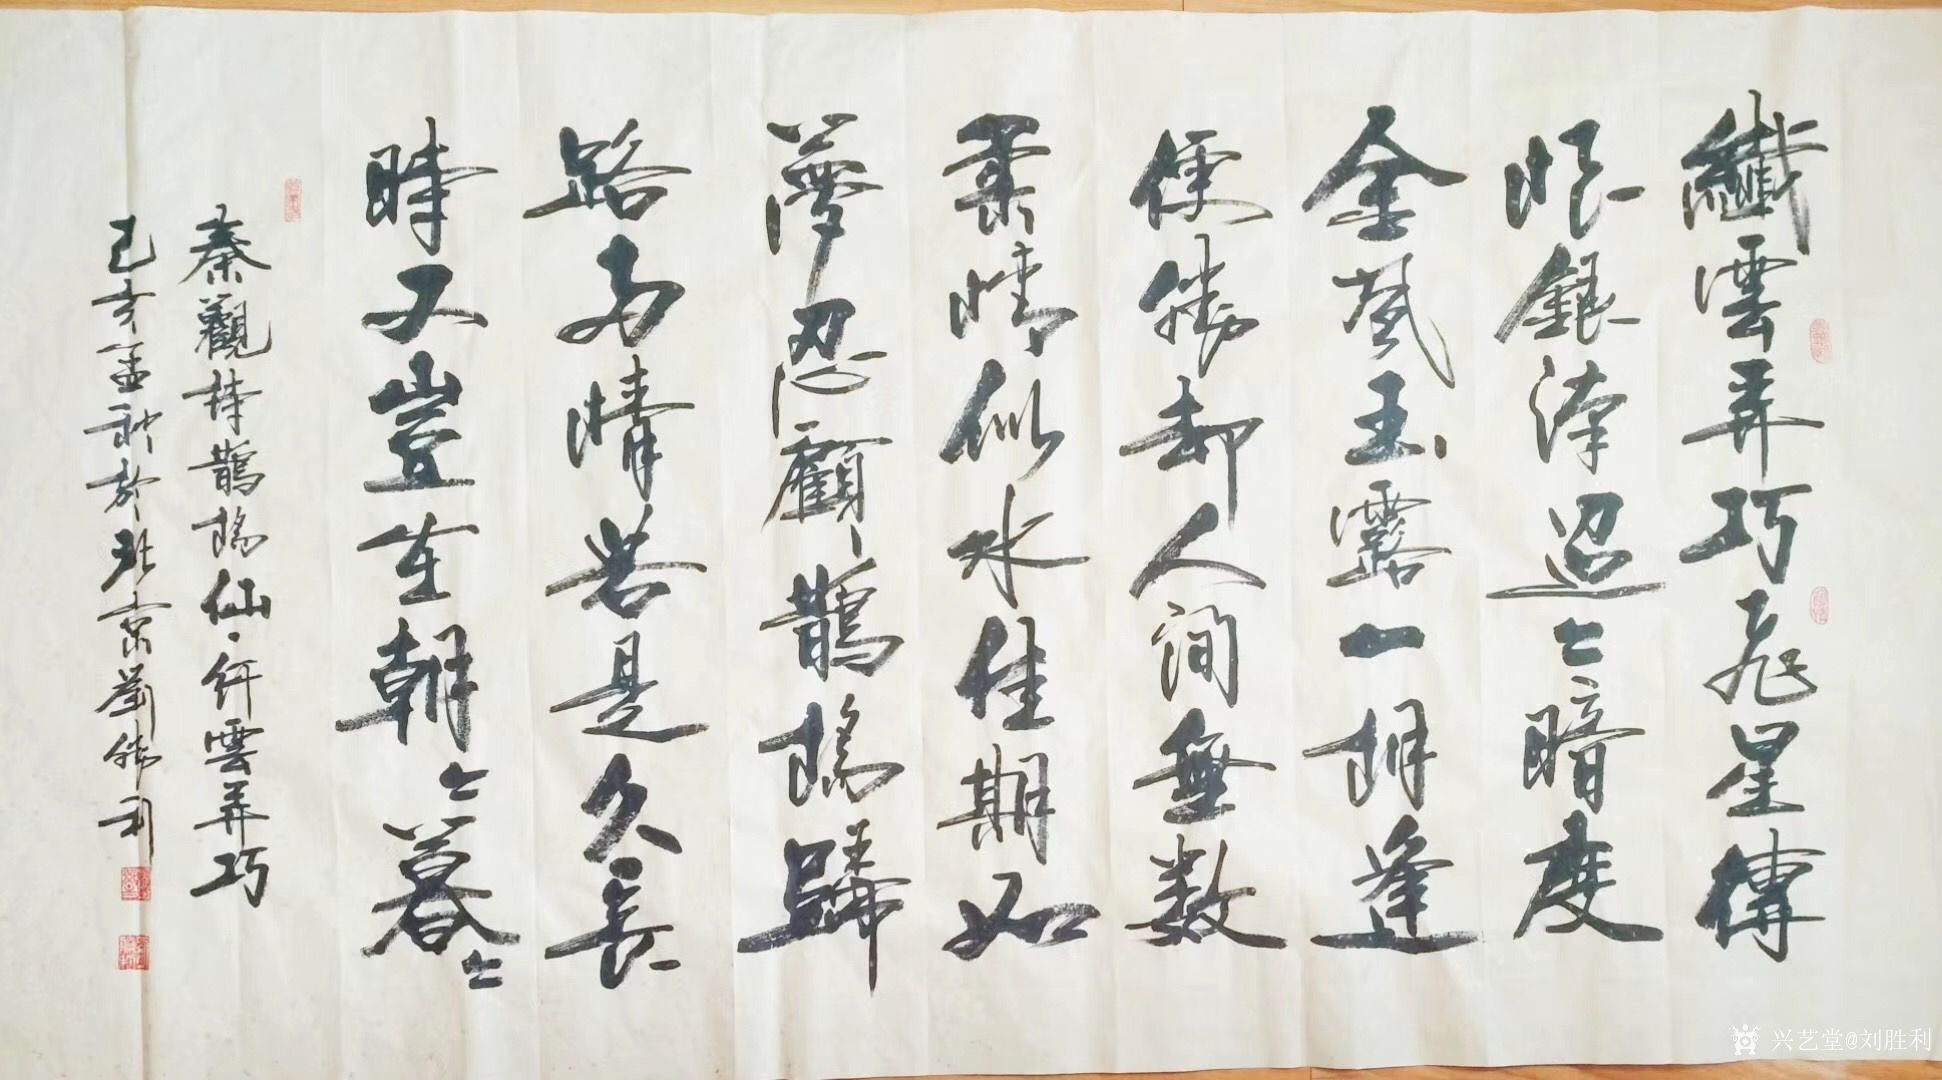 纖雲弄巧飛星傳
恨銀漢迢々暗度
金風玉露一相逢
便勝却人間無数
柔情似水佳期如
夢忍顧鵲橋歸
路兩情若是久長
時又豈在朝々暮々
秦觀詩鵲橋仙·纤雲弄巧
己亥孟秋於北京劉勝利
兴艺堂@刘胜利